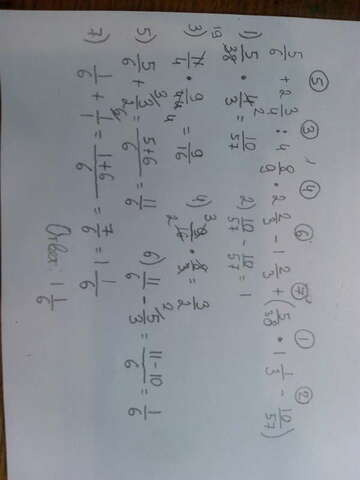 ⑤ ③ , ④ ⑥ ⑦ ① ②
5/6 + 2 3/4 : 4 8/9 · 2 2/3 - 1 2/3 + (5/38 · 1 1/3 - 10/57)
1) 5/38 · 4/3 = 10/57 2) 10/57 - 10/57 = 1
3) 11/4 · 9/44 = 9/16 4) 9/16 · 8/3 = 3/2
5) 5/6 + 3/2 = 5+6/6 = 11/6 6) 11/6 - 5/3 = 11-10/6 = 1/6
7) 1/6 + 1/1 = 1+6/6 = 7/6 = 1 1/6
Ответ: 1 1/6